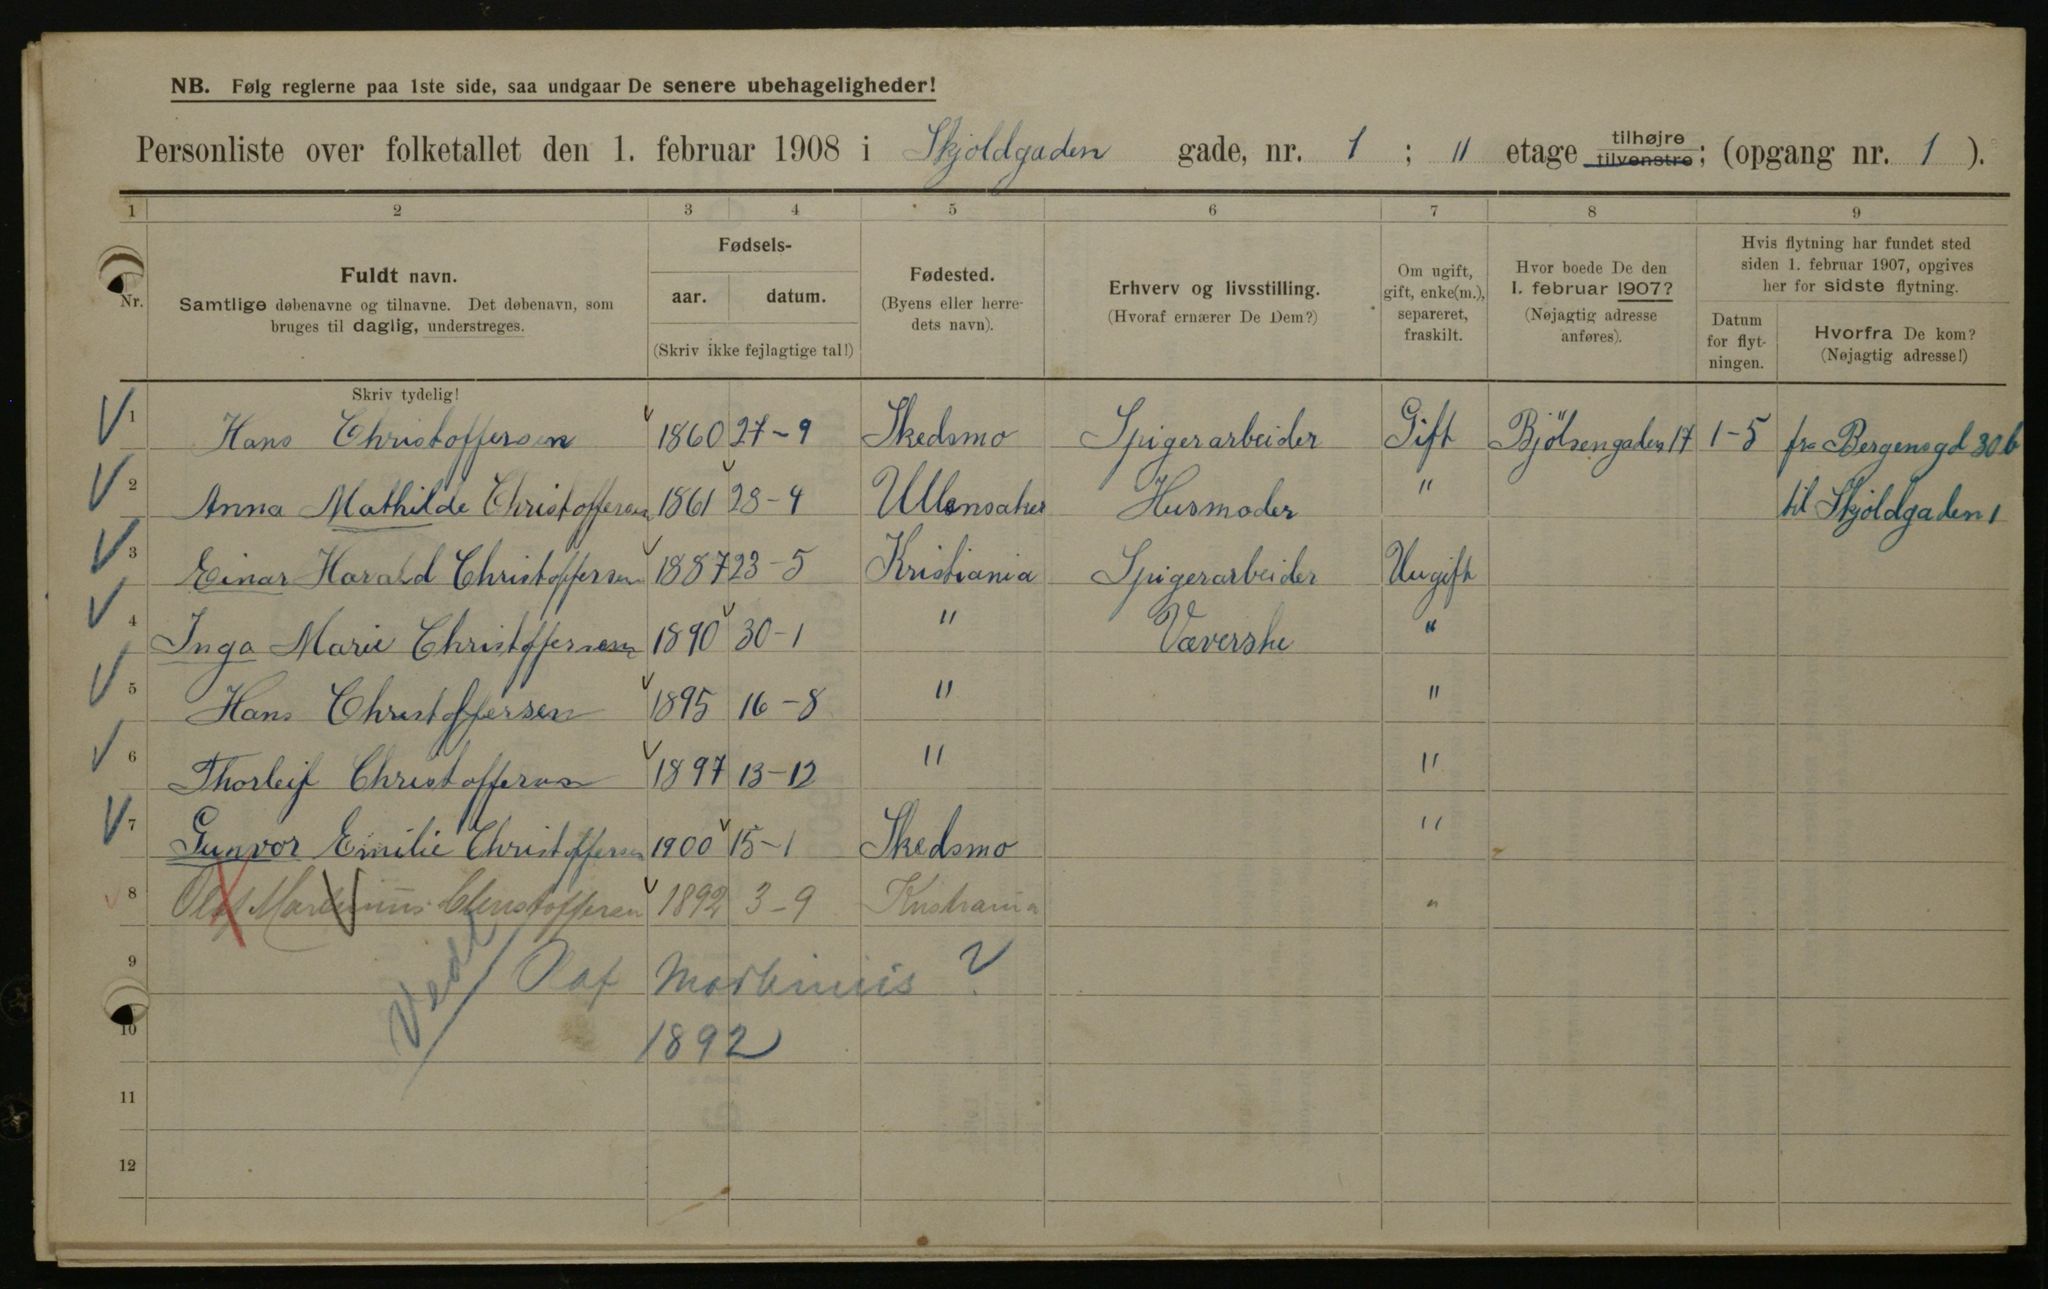 NB. Følg reglerne paa 1ste side, saa undgaar De senere ubehageligheder!
Personliste over folketallet den 1. februar 1908 i Skjoldgaden gade, nr. 1 ; II etage tilhøjre tilvenstre; (opgang nr. 1 ).
1 2 3 4 5 6 7 8 9
Nr.
Fuldt navn.
Samtlige døbenavne og tilnavne. Det døbenavn, som
bruges til daglig, understreges.
Fødsels-
aar. datum.
(Skriv ikke fejlagtige tal!)
Fødested.
(Byens eller herre-
dets navn).
Erhverv og livsstilling.
(Hvoraf ernærer De Dem?)
Om ugift,
gift, enke(m.),
separeret,
fraskilt.
Hvor boede De den
1. februar 1907?
(Nøjagtig adresse
anføres).
Hvis flytning har fundet sted
siden 1. februar 1907, opgives
her for sidste flytning.
Datum
for flyt-
ningen.
Hvorfra De kom?
(Nøjagtig adresse!)
Skriv tydelig!
1 Hans Christoffersen 1860 27-9 Skedsmo Spigerarbeider Gift Bjölsengaden 17 1-5 fra Bergensgd 30b
2 Anna Mathilde Christoffersen 1861 28-4 Ullensaker Husmoder " til Skjoldgaden 1
3 Einar Harald Christoffersen 1887 23-5 Kristiania Spigerarbeider Ungift
4 Inga Marie Christoffersen 1890 30-1 " Væverske "
5 Hans Christoffersen 1895 16-8 " "
6 Thorleif Christoffersen 1897 13-12 " "
7 Gunvor Emilie Christoffersen 1900 15-1 Skedsmo "
8 Olaf Martinius Christoffersen 1892 3-9 Kristiania "
9 Olaf Martinius ?
10 1892
11
12